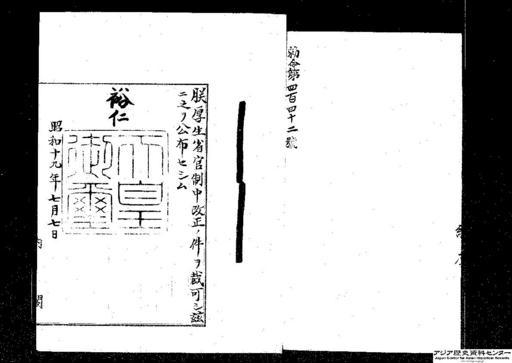 勅令第四百四十二號
朕厚生省官制中改正ノ件ヲ裁可シ茲
ニ之ヲ公布セシム
裕仁
天皇御璽
昭和十九年七月七日
内閣
アジア歴史資料センター
Japan Center for Asian Historical Records